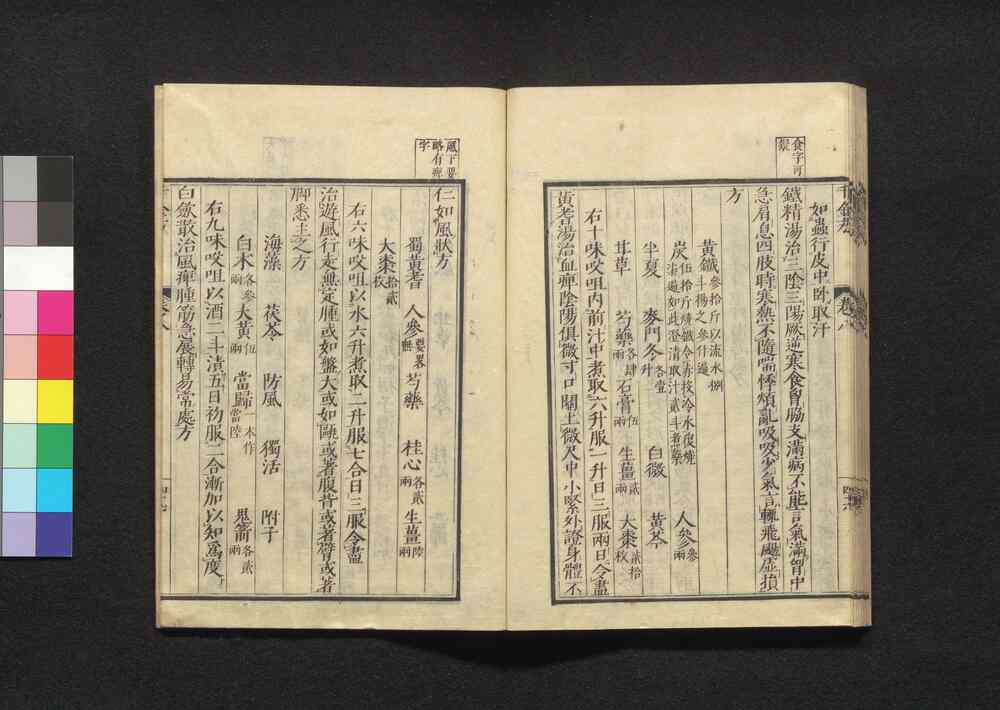 食字可
如蟲行皮中臥取汗
鐵精湯治三陰三陽厥逆寒食胷脇支滿病不能言氣滿胷中
急肩息四肢時寒熱不隨喘悸煩亂吸吸少氣言輒飛颺虛損
方
黃鐵叁拾斤以流水捌斗揚之叁什遍
炭伍拾斤燒鐵令赤投冷水復燒柒遍如此澄清取汁貳斗煮藥
人參叁兩
半夏 麥門冬各壹升 白薇 黃芩
甘草 芍藥各肆兩 石膏伍兩 生薑貳兩 大棗貳拾枚
右十味㕮咀內前汁中煮取六升服一升日三服兩日令盡
黃耆湯治血痹陰陽俱微寸口關上微尺中小緊外證身體不
風下要略有痹字
仁如風狀方
蜀黃耆 人參要畧無 芍藥 桂心各貳兩 生薑陸兩
大棗拾貳枚
右六味㕮咀以水六升煮取二升服七合日三服令盡
治遊風行走無定腫或如盤大或如甌或著腹背或著臂或著
脚悉主之方
海藻 茯苓 防風 獨活 附子
白朮各叁兩 大黃伍兩 當歸一本作當陸 鬼箭各貳兩
右九味㕮咀以酒二斗漬五日初服二合漸加以知爲度
白斂散治風痹腫筋急展轉易常處方